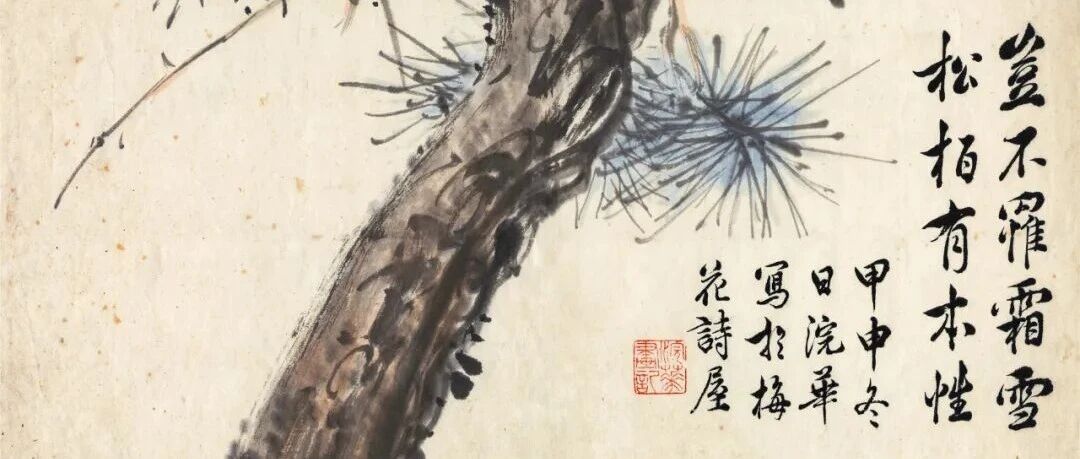 豈不罹霜雪
松栢有本性
甲申冬
日浣華
寫於梅
花詩屋